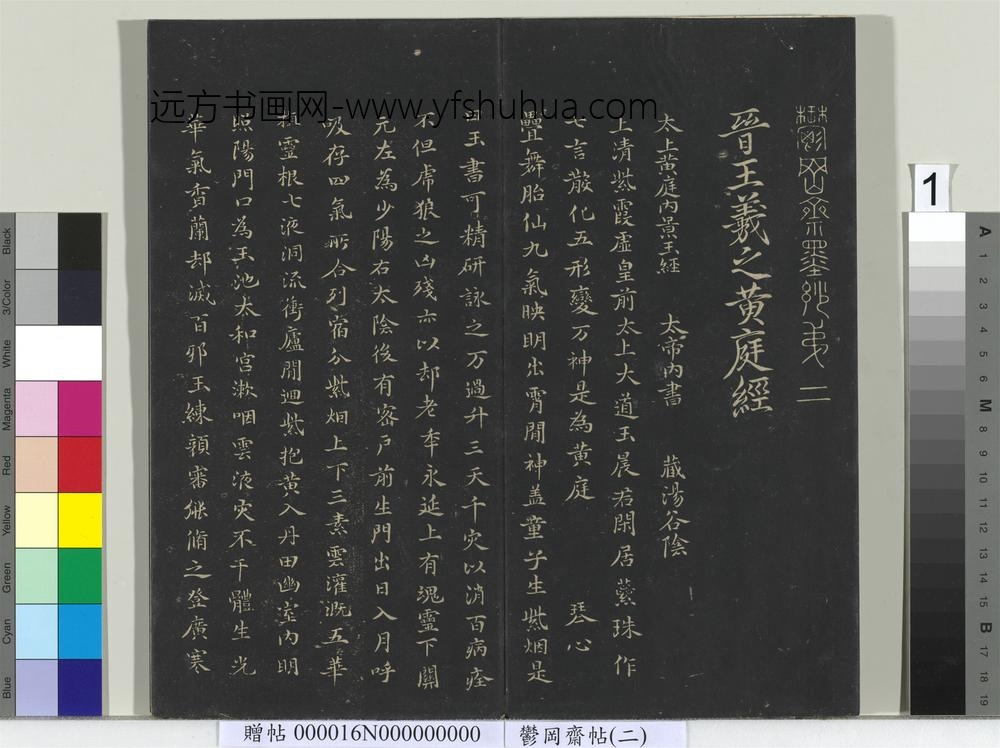 鬱岡齋墨妙弟二
晉王羲之黄庭經
太上黄庭內景玉經 太帝內書 藏湯谷陰
上清紫霞虛皇前太上大道玉晨君閑居蘂珠作
七言散化五形變万神是為黄庭 琴心
疊舞胎仙九氣映明出霄間神盖童子生紫烟是
曰玉書可精研詠之万過升三天千灾以消百病痊
不但虎狼之凶殘亦以却老年永延上有魂靈下關
元左為少陽右太陰後有密戶前生門出日入月呼
吸存四氣所合列宿分紫烟上下三素雲灌溉五華
植靈根七液洞流衝廬間迴紫抱黄入丹田幽室內明
照陽門口為玉池太和宮漱咽雲液灾不干體生光
華氣香蘭却滅百邪玉練顏審能脩之登廣寒
远方书画网-www.yfshuhua.com
1
Black
3/Color
White
Magenta
Red
Yellow
Green
Cyan
Blue
A 1 2 3 4 5 6 M 8 9 10 11 12 13 14 15 B 17 18 19
贈帖 000016N000000000 鬱岡齋帖(二)